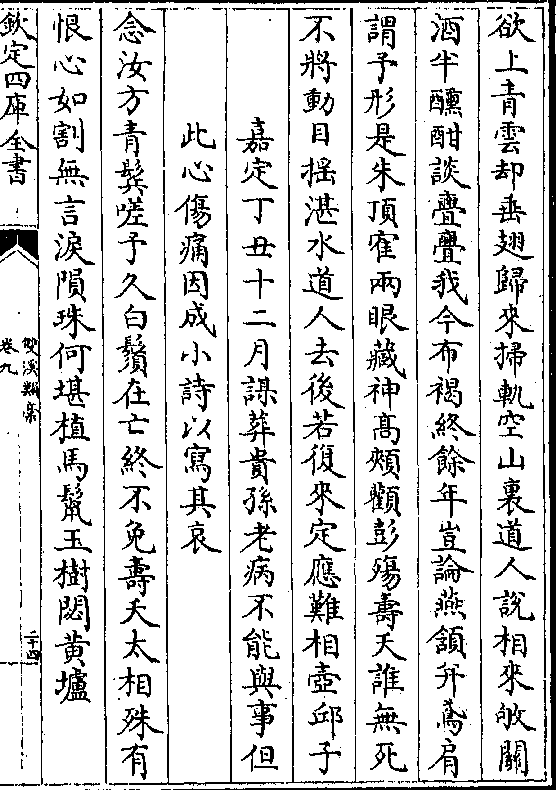 欲上青雲却垂翅歸來掃軌空山裏道人說相來敂關
酒半醺酣談亹亹我今布褐終餘年豈論燕頷并鳶肩
謂予形是朱頂寉兩眼藏神髙頰顴彭殤壽夭誰無死
不將動目揺湛水道人去後若復來定應難相壺邱子
嘉定丁丑十二月謀葬貴孫老病不能與事但
此心傷痛因成小詩以寫其哀
念汝方青鬂嗟予久白鬚在亡終不免壽夭太相殊有
恨心如割無言淚隕珠何堪植馬鬛玉樹閟黄壚
欽定四庫全書
雙溪類稾
卷九
二十四